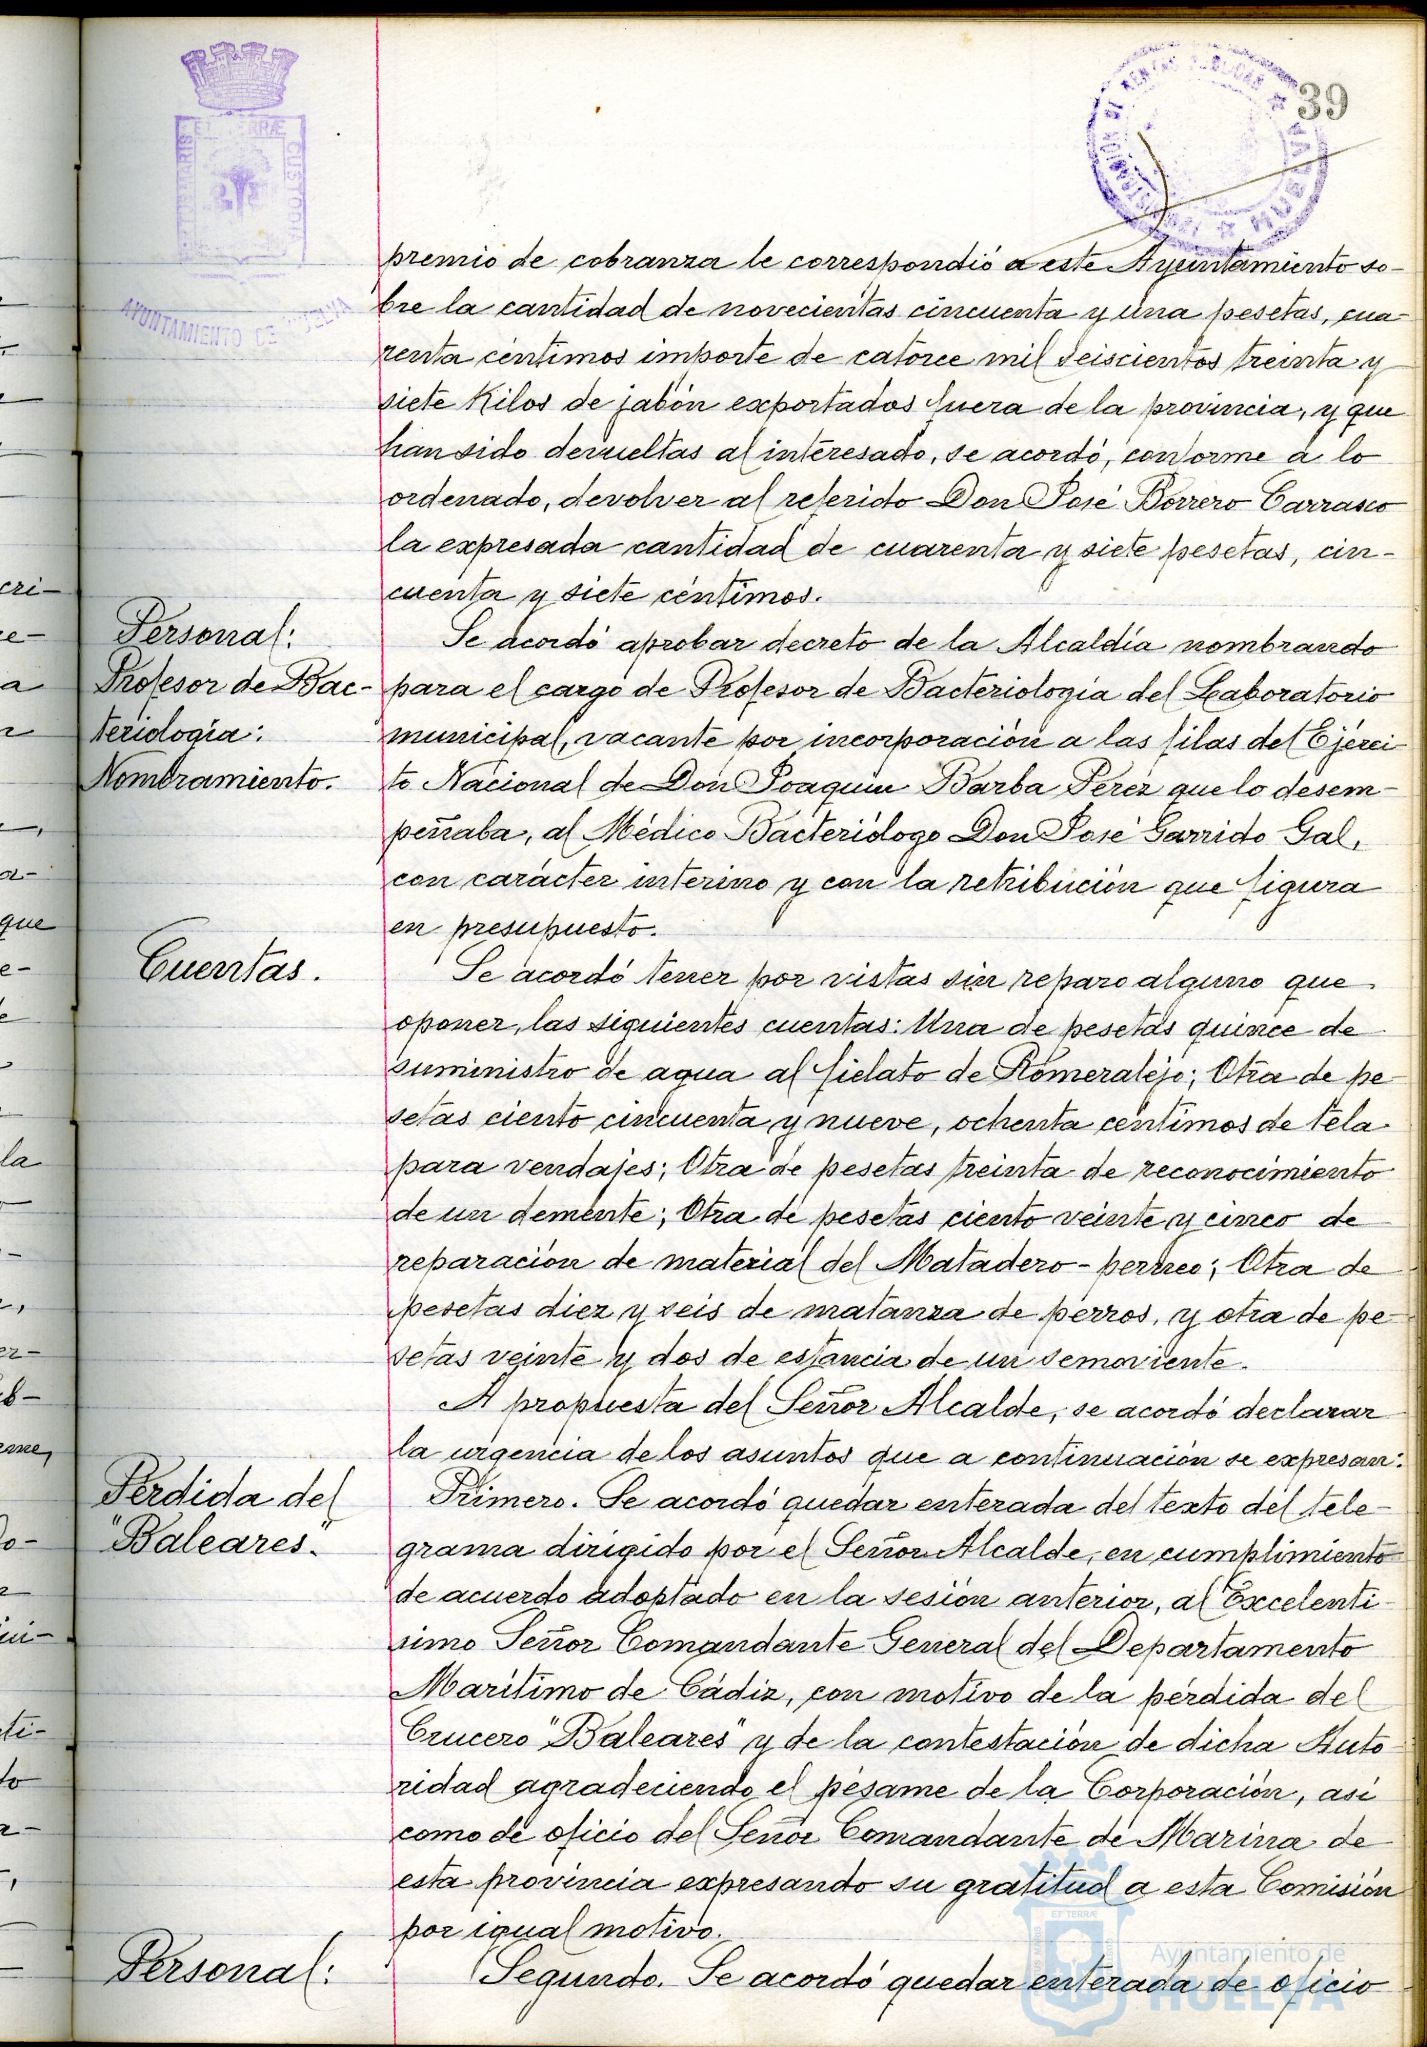 39
premio de cobranza le correspondió a este Ayuntamiento so-
bre la cantidad de novecientas cincuenta y una pesetas, cua-
renta céntimos importe de catorce mil seiscientos treinta y
siete Kilos de jabón exportados fuera de la provincia, y que
han sido devueltas al interesado, se acordó, conforme a lo
ordenado, devolver al referido Don José Borrero Carrasco
la expresada cantidad de cuarenta y siete pesetas, cin-
cuenta y siete céntimos.
Personal:
Profesor de Bac-
teriología:
Nombramiento.
Se acordó aprobar decreto de la Alcaldía nombrando
para el cargo de Profesor de Bacteriología del Laboratorio
municipal, vacante por incorporación a las filas del Ejérci-
to Nacional de Don Joaquín Barba Pérez que lo desem-
peñaba, al Médico Bacteriólogo Don José Garrido Gal,
con carácter interino y con la retribución que figura
en presupuesto.
Cuentas.
Se acordó tener por vistas sin reparo alguno que
oponer, las siguientes cuentas: Una de pesetas quince de
suministro de agua al fielato de Romeralejo; Otra de pe-
setas ciento cincuenta y nueve, ochenta céntimos de tela
para vendajes; Otra de pesetas treinta de reconocimiento
de un demente; Otra de pesetas ciento veinte y cinco de
reparación de material del Matadero - perneo; Otra de
pesetas diez y seis de matanza de perros, y otra de pe-
setas veinte y dos de estancia de un semoviente.
A propuesta del Señor Alcalde, se acordó declarar
la urgencia de los asuntos que a continuación se expresan:
Pérdida del
"Baleares".
Primero. Se acordó quedar enterada del texto del tele-
grama dirigido por el Señor Alcalde, en cumplimiento
de acuerdo adoptado en la sesión anterior, al Excelentí-
simo Señor Comandante General del Departamento
Marítimo de Cádiz, con motivo de la pérdida del
Crucero "Baleares" y de la contestación de dicha Auto-
ridad agradeciendo el pésame de la Corporación, así
como de oficio del Señor Comandante de Marina de
esta provincia expresando su gratitud a esta Comisión
por igual motivo.
Personal:
Segundo. Se acordó quedar enterada de oficio
AYUNTAMIENTO DE HUELVA
Ayuntamiento de
HUELVA